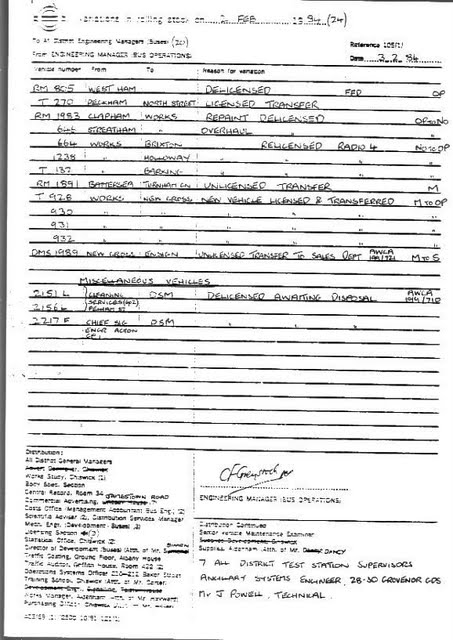 Variations in rolling stock on 2 FEB 1984 (24)
To All District Engineering Managers (Buses) (20)
From ENGINEERING MANAGER (BUS OPERATIONS)
Reference 105/1/
Date 3.2.84
Vehicle number From To Reason for variation
RM 805 WEST HAM DELICENSED FED OP
T 270 PECKHAM NORTH STREET LICENSED TRANSFER
RM 1983 CLAPHAM WORKS REPAINT DELICENSED OP to NO
646 STREATHAM " OVERHAUL " "
664 WORKS BRIXTON RELICENSED RADIO 4 NO to OP
1238 " HOLLOWAY " "
T 137 " BARKING " "
RM 1891 BATTERSEA TURNHAM GN UNLICENSED TRANSFER M
T 928 WORKS NEW CROSS NEW VEHICLE LICENSED & TRANSFERRED M to OP
930 " " " "
931 " " " "
932 " " " "
DMS 1989 NEW CROSS ENSIGN UNLICENSED TRANSFER TO SALES DEPT AWCA M to S
MISCELLANEOUS VEHICLES
2151 L CLEANING DSM DELICENSED AWAITING DISPOSAL AWCA
2156 L SERVICES
2217 F CHIEF SIG DSM " "
ENGR ACTON
Distribution:
All District General Managers
Works Study, Chiswick (1)
Body Spec. Section
Central Record, Room 54
Commercial Advertising,
Costs Office (Management Accountant Bus Eng.) (2)
Scientific Adviser (2), Distribution Services Manager
Mech. Engr. (Development Buses) (3)
Licensing Section
Statistical Office, Chiswick (2)
Director of Development (Buses) (Attn. of Mr.
Traffic Costing, Ground Floor, Albany House
Traffic Auditor, Griffith House, Room 422 (2)
Operations Systems Officer Baker Street
Training School, Chiswick (Attn. of Mr. Carter)
Works Manager, Aldenham (Attn. of Mr. Hayward)
Purchasing Officer, Chiswick
ENGINEERING MANAGER (BUS OPERATIONS)
Distribution Continued
Senior Vehicle Maintenance Examiner
Supplies, Aldenham (Attn. of Mr. DANCY)
7 ALL DISTRICT TEST STATION SUPERVISORS
ANCILLARY SYSTEMS ENGINEER, 28-30 GROVENOR GDS
Mr J POWELL, TECHNICAL.